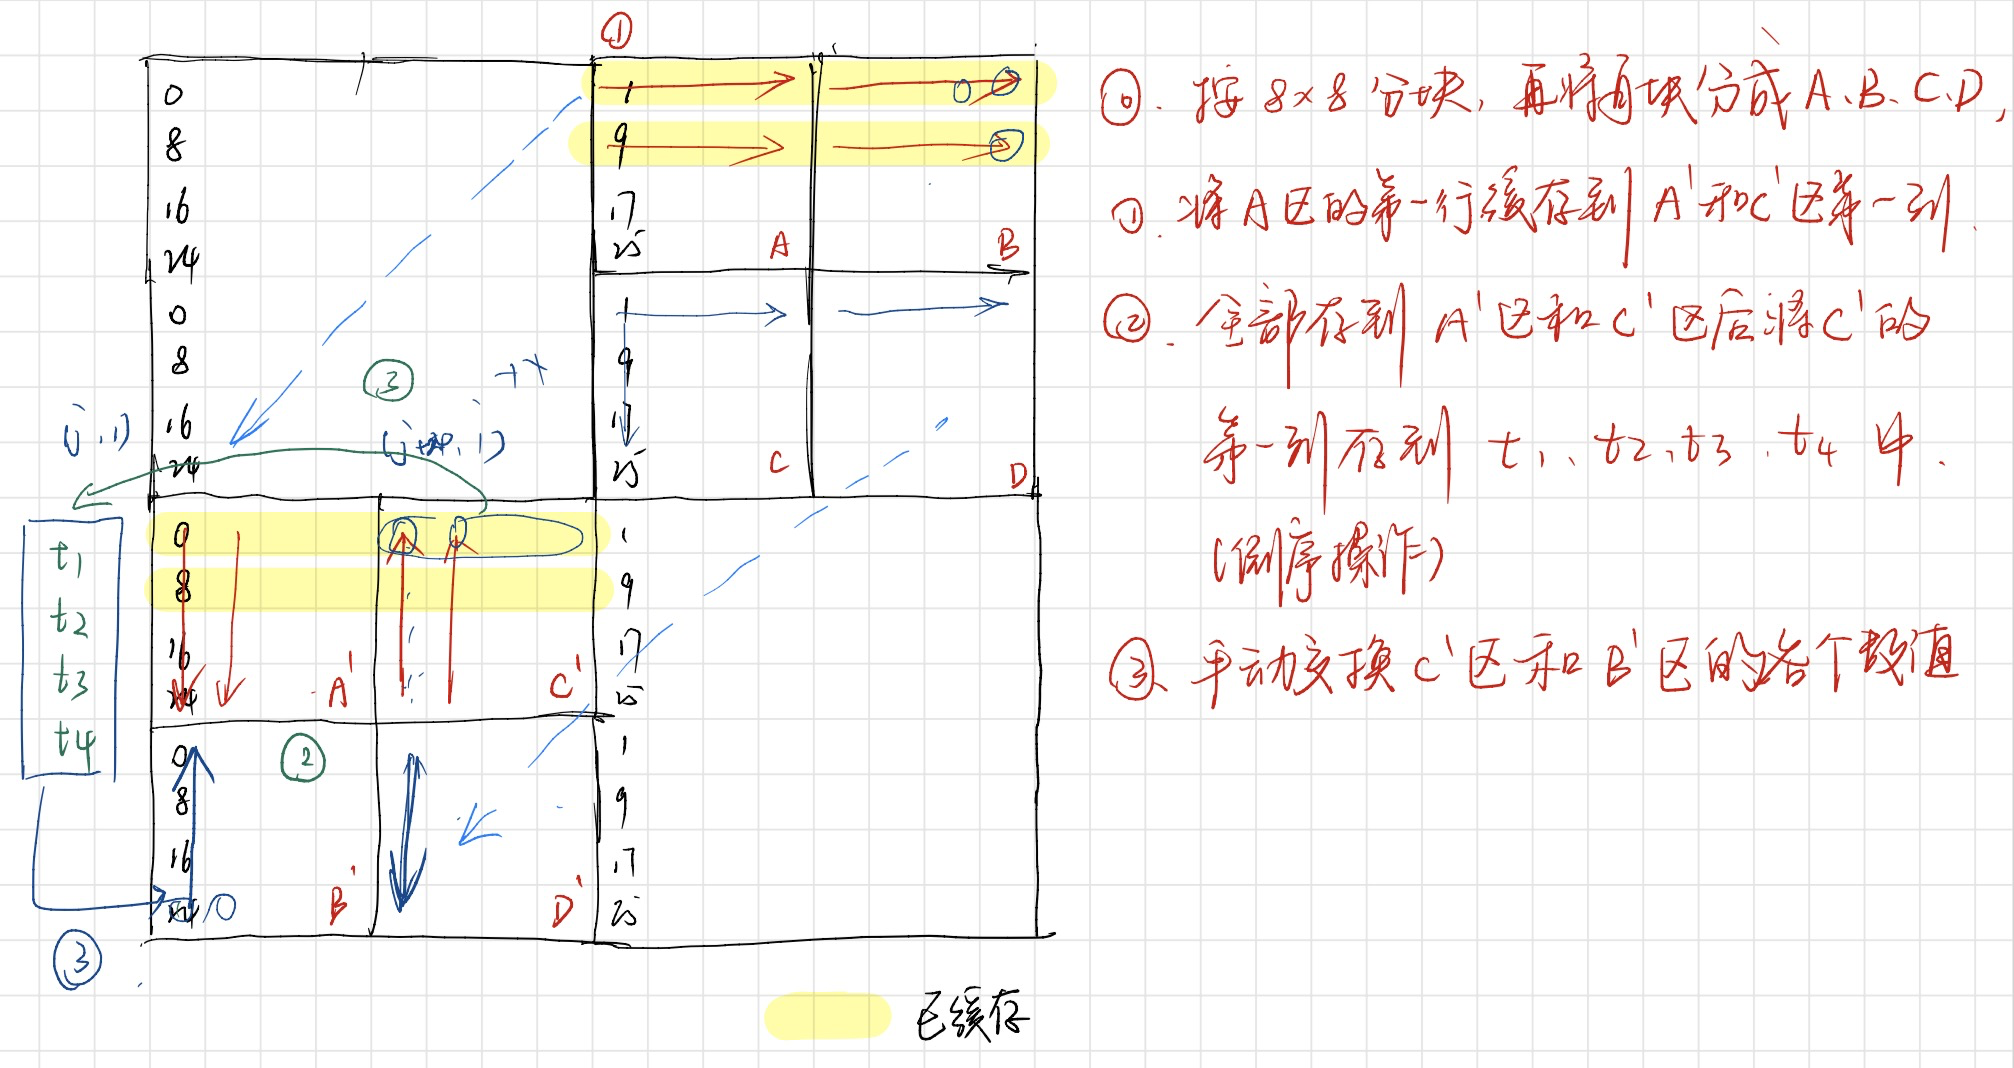 ①
0
8
16
24
0
8
16
24
1
9
17
25
A
B
1
9
17
25
C
D
③
(j,i)
t1
t2
t3
t4
0
8
16
24
A'
C'
②
0
8
16
24
B'
D'
1
9
17
25
1
9
17
25
③
已缓存
⓪. 按8×8分块,再将每块分成A、B、C、D,
①. 将A区的第一行缓存到A'和C'区第一列.
②. 全部存到A'区和C'区后将C'的
第一列存到t1、t2、t3、t4中.
(倒序操作)
③、手动交换C'区和B'区的各个数值